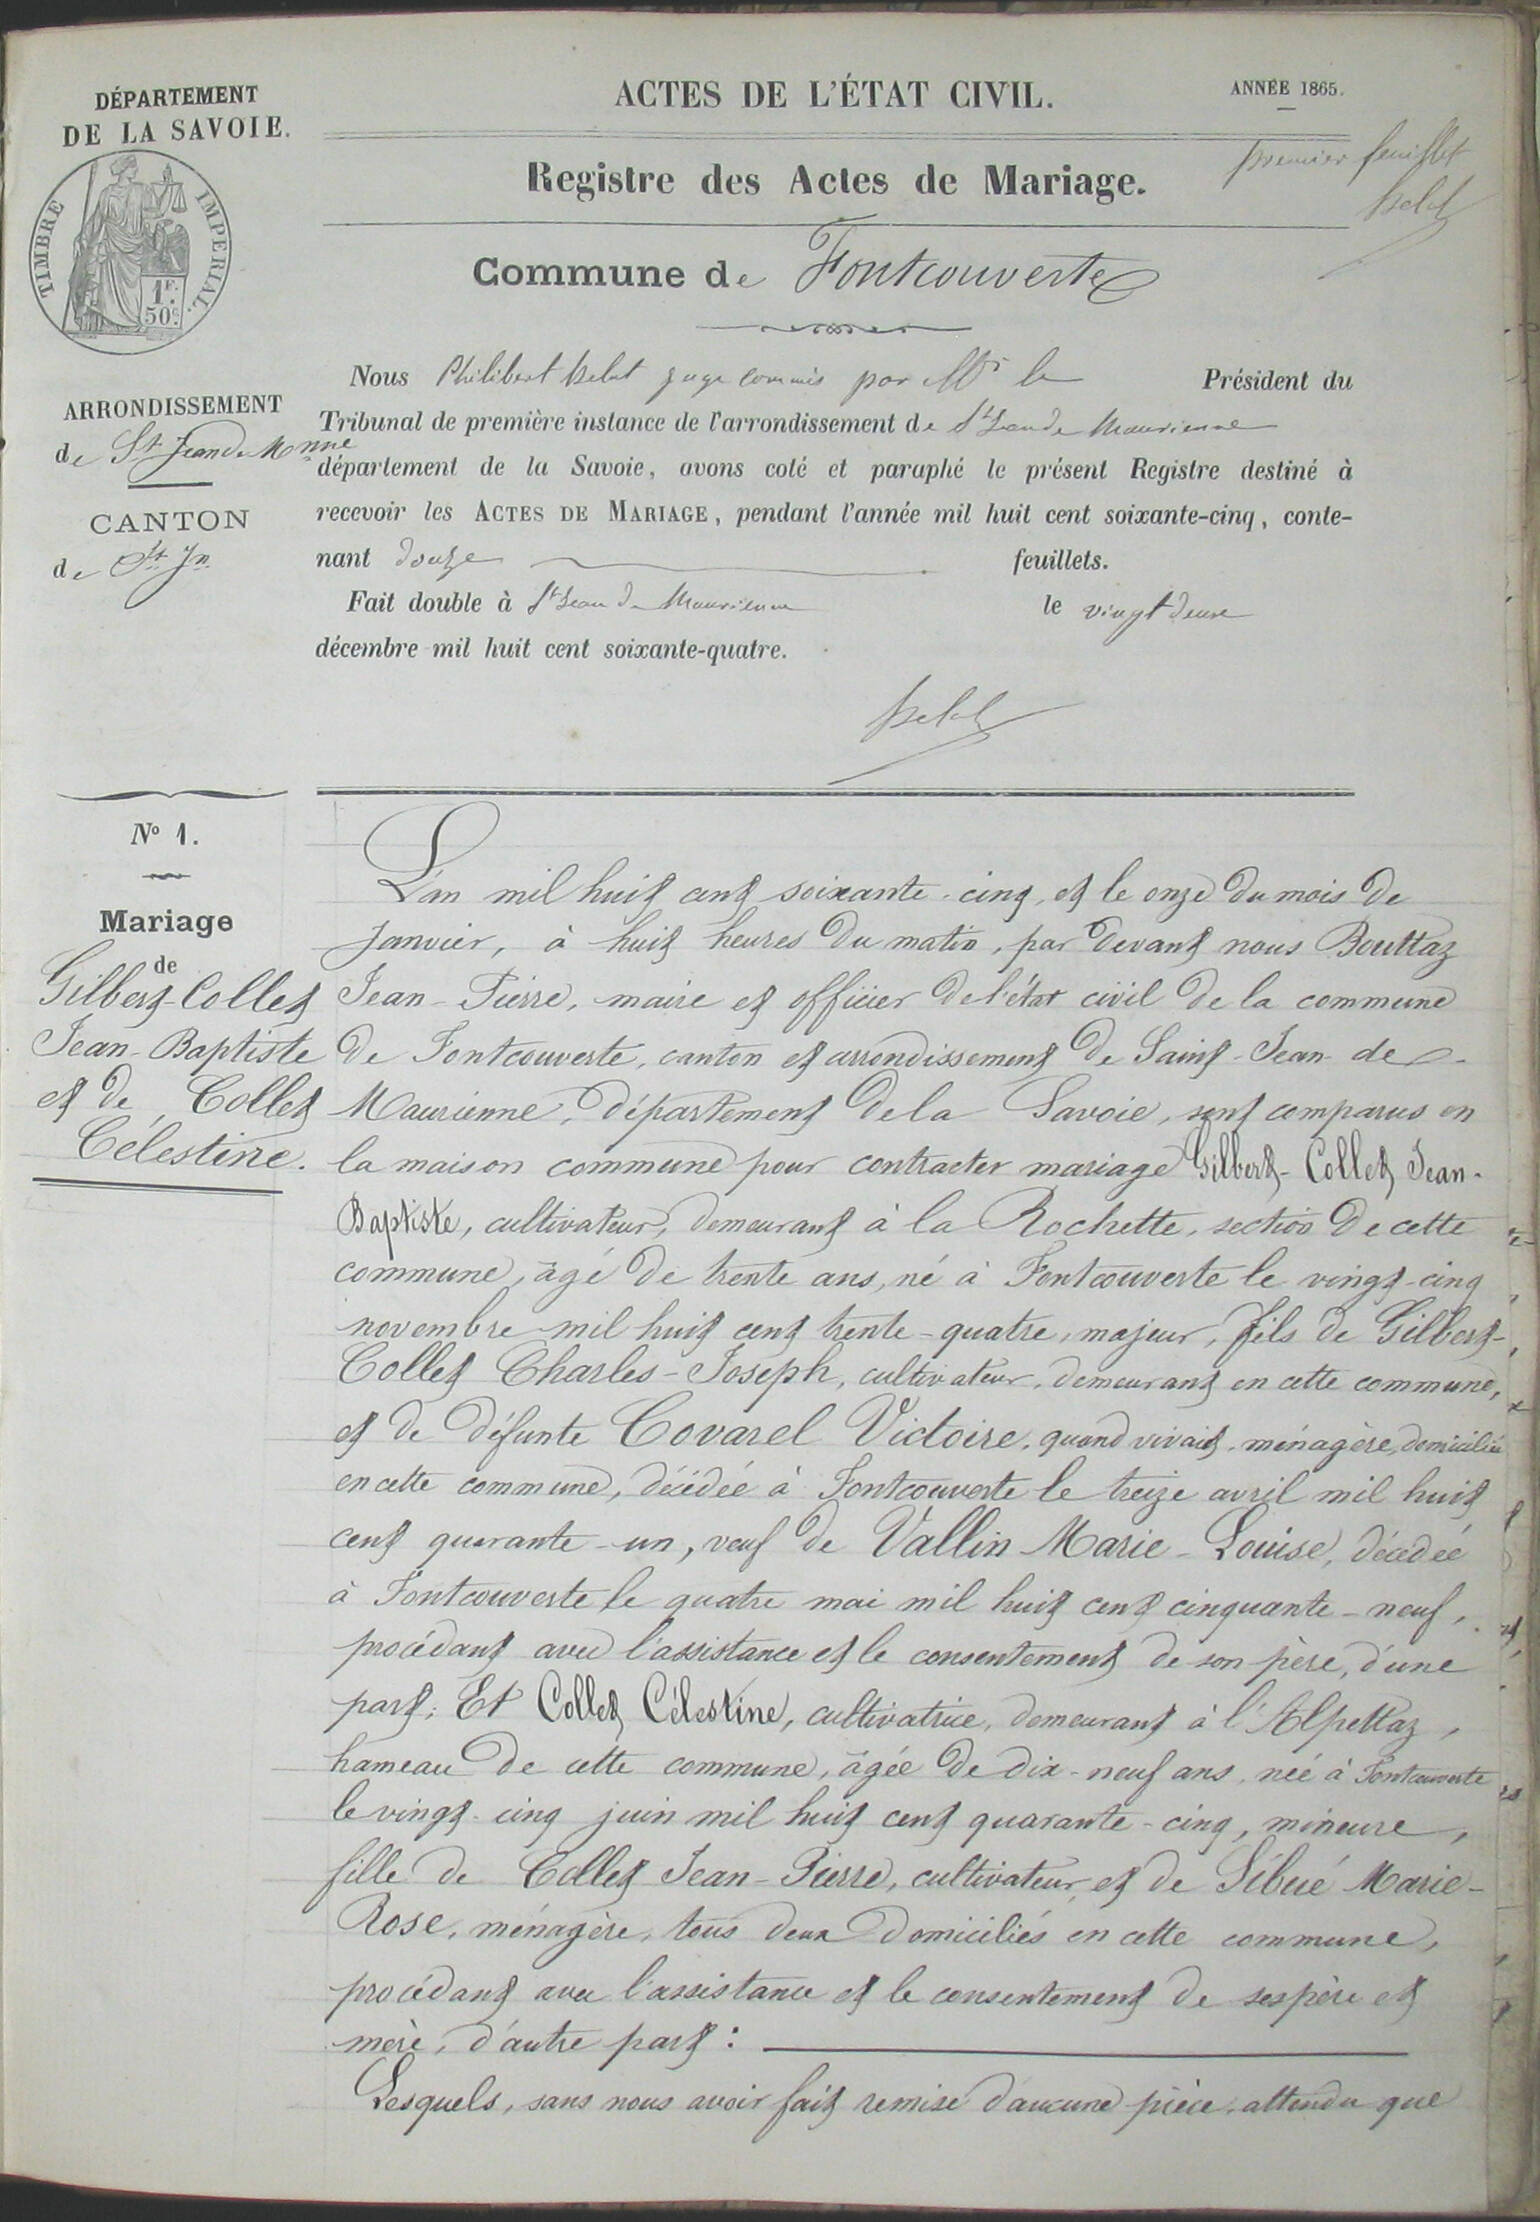 DÉPARTEMENT
DE LA SAVOIE.
TIMBRE IMPERIAL.
1F.
50c.
ARRONDISSEMENT
de St Jean de Mnne
CANTON
de St Jn
ACTES DE L'ÉTAT CIVIL.
ANNÉE 1865.
premier feuillet
Registre des Actes de Mariage.
Commune de Fontcouverte
Nous Philibert juge commis par Mr le Président du
Tribunal de première instance de l'arrondissement de St Jean de Maurienne
département de la Savoie, avons coté et paraphé le présent Registre destiné à
recevoir les ACTES DE MARIAGE, pendant l'année mil huit cent soixante-cinq, conte-
nant douze feuillets.
Fait double à St Jean de Maurienne le vingt deux
décembre mil huit cent soixante-quatre.
No 1.
Mariage
de
Gilbert-Collet
Jean-Baptiste
et de Collet
Célestine.
L'an mil huit cent soixante-cinq, et le onze du mois de
Janvier, à huit heures du matin, par devant nous Bouttaz
Jean-Pierre, maire et officier de l'état civil de la commune
de Fontcouverte, canton et arrondissement de Saint-Jean-de-
Maurienne, département de la Savoie, sont comparus en
la maison commune pour contracter mariage Gilbert-Collet Jean-
Baptiste, cultivateur, demeurant à la Rochette, section de cette
commune, âgé de trente ans, né à Fontcouverte le vingt-cinq
novembre mil huit cent trente-quatre, majeur, fils de Gilbert-
Collet Charles-Joseph, cultivateur, demeurant en cette commune,
et de défunte Covarel Victoire, quand vivait, ménagère, domiciliée
en cette commune, décédée à Fontcouverte le treize avril mil huit
cent quarante-un, veuf de Vallin Marie-Louise, décédée
à Fontcouverte le quatre mai mil huit cent cinquante-neuf,
procédant avec l'assistance et le consentement de son père, d'une
part; Et Collet Célestine, cultivatrice, demeurant à l'Alpettaz,
hameau de cette commune, âgée de dix-neuf ans, née à Fontcouverte
le vingt-cinq juin mil huit cent quarante-cinq, mineure,
fille de Collet Jean-Pierre, cultivateur, et de Sibué Marie-
Rose, ménagère, tous deux domiciliés en cette commune,
procédant avec l'assistance et le consentement de ses père et
mère, d'autre part:
Lesquels, sans nous avoir fait remise d'aucune pièce, attendu que